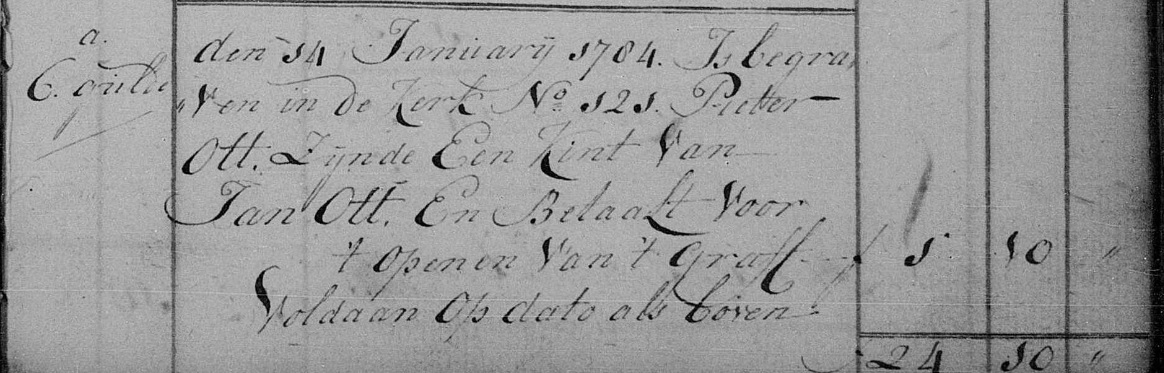 a.
6. gulde
den 14 Januarij 1784. Is begra
„ven in de Kerk No 121. Pieter
Ott. Zijnde Een Kint Van
Jan Ott. En Betaalt Voor
't openen Van 't Graff --- f 1 10 "
Voldaan Op dato als boven
24 10 "